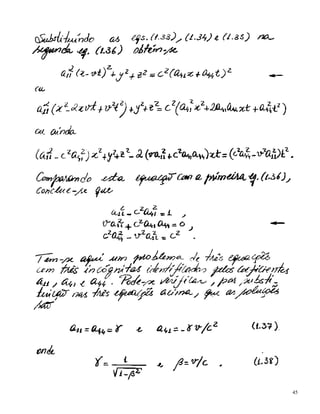 Substituindo as eqs. (1.33), (1.34) e (1.35) na
segunda eq. (1.36) obtém-se
a₁₁²(x-vt)²+y²+z²=c²(a₄₁x+a₄₄t)²
ou
a₁₁²(x²-2xvt+v²t²)+y²+z²=c²(a₄₁²x²+2a₄₁a₄₄xt+a₄₄²t²)
ou ainda
(a₁₁²-c²a₄₁²)x²+y²+z²-2(va₁₁²+c²a₄₁a₄₄)xt=(c²a₄₄²-v²a₁₁²)t².
Comparando esta equação com a primeira eq. (1.36),
conclue-se que
a₁₁²-c²a₄₁²=1,
va₁₁²+c²a₄₁a₄₄=0,
c²a₄₄²-v²a₁₁²=c².
Tem-se aqui um problema de três equações
com três incógnitas identificadas pelos coeficientes
a₁₁, a₄₁ e a₄₄. Pode-se verificar, por substi-
tuição nas três equações acima, que as soluções
são
a₁₁=a₄₄=γ e a₄₁=-γv/c² (1.37)
onde
γ=1/√1-β² e β=v/c. (1.38)
45